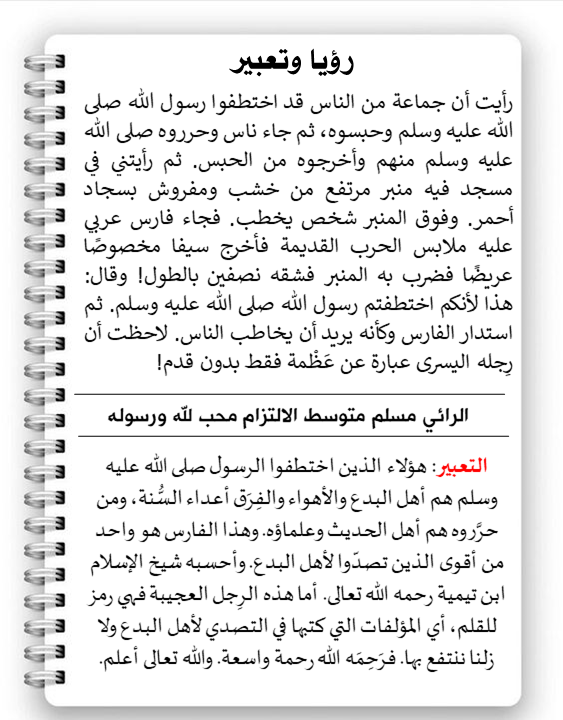 رؤيا وتعبير
رأيت أن جماعة من الناس قد اختطفوا رسول الله صلى
الله عليه وسلم وحبسوه، ثم جاء ناس وحرروه صلى الله
عليه وسلم منهم وأخرجوه من الحبس. ثم رأيتني في
مسجد فيه منبر مرتفع من خشب ومفروش بسجاد
أحمر. وفوق المنبر شخص يخطب. فجاء فارس عربي
عليه ملابس الحرب القديمة فأخرج سيفا مخصوصًا
عريضًا فضرب به المنبر فشقه نصفين بالطول! وقال:
هذا لأنكم اختطفتم رسول الله صلى الله عليه وسلم. ثم
استدار الفارس وكأنه يريد أن يخاطب الناس. لاحظت أن
رِجله اليسرى عبارة عن عَظْمة فقط بدون قدم!
الرائي مسلم متوسط الالتزام محب لله ورسوله
التعبير: هؤلاء الذين اختطفوا الرسول صلى الله عليه
وسلم هم أهل البدع والأهواء والفِرَق أعداء السُّنة، ومن
حرَّروه هم أهل الحديث وعلماؤه. وهذا الفارس هو واحد
من أقوى الذين تصدّوا لأهل البدع. وأحسبه شيخ الإسلام
ابن تيمية رحمه الله تعالى. أما هذه الرِجل العجيبة فهي رمز
للقلم، أي المؤلفات التي كتبها في التصدي لأهل البدع ولا
زلنا ننتفع بها. فرَحِمَه الله رحمة واسعة. والله تعالى أعلم.